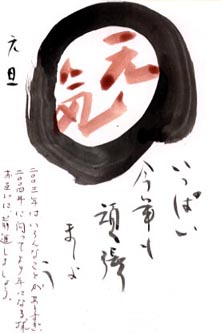 元気
いっぱい
今年も
頑張
りましょ
う
二〇〇三年はいろんなことがありましたが
二〇〇四年に向ってより良い年になる様
お互いに前進しましょう。
元旦